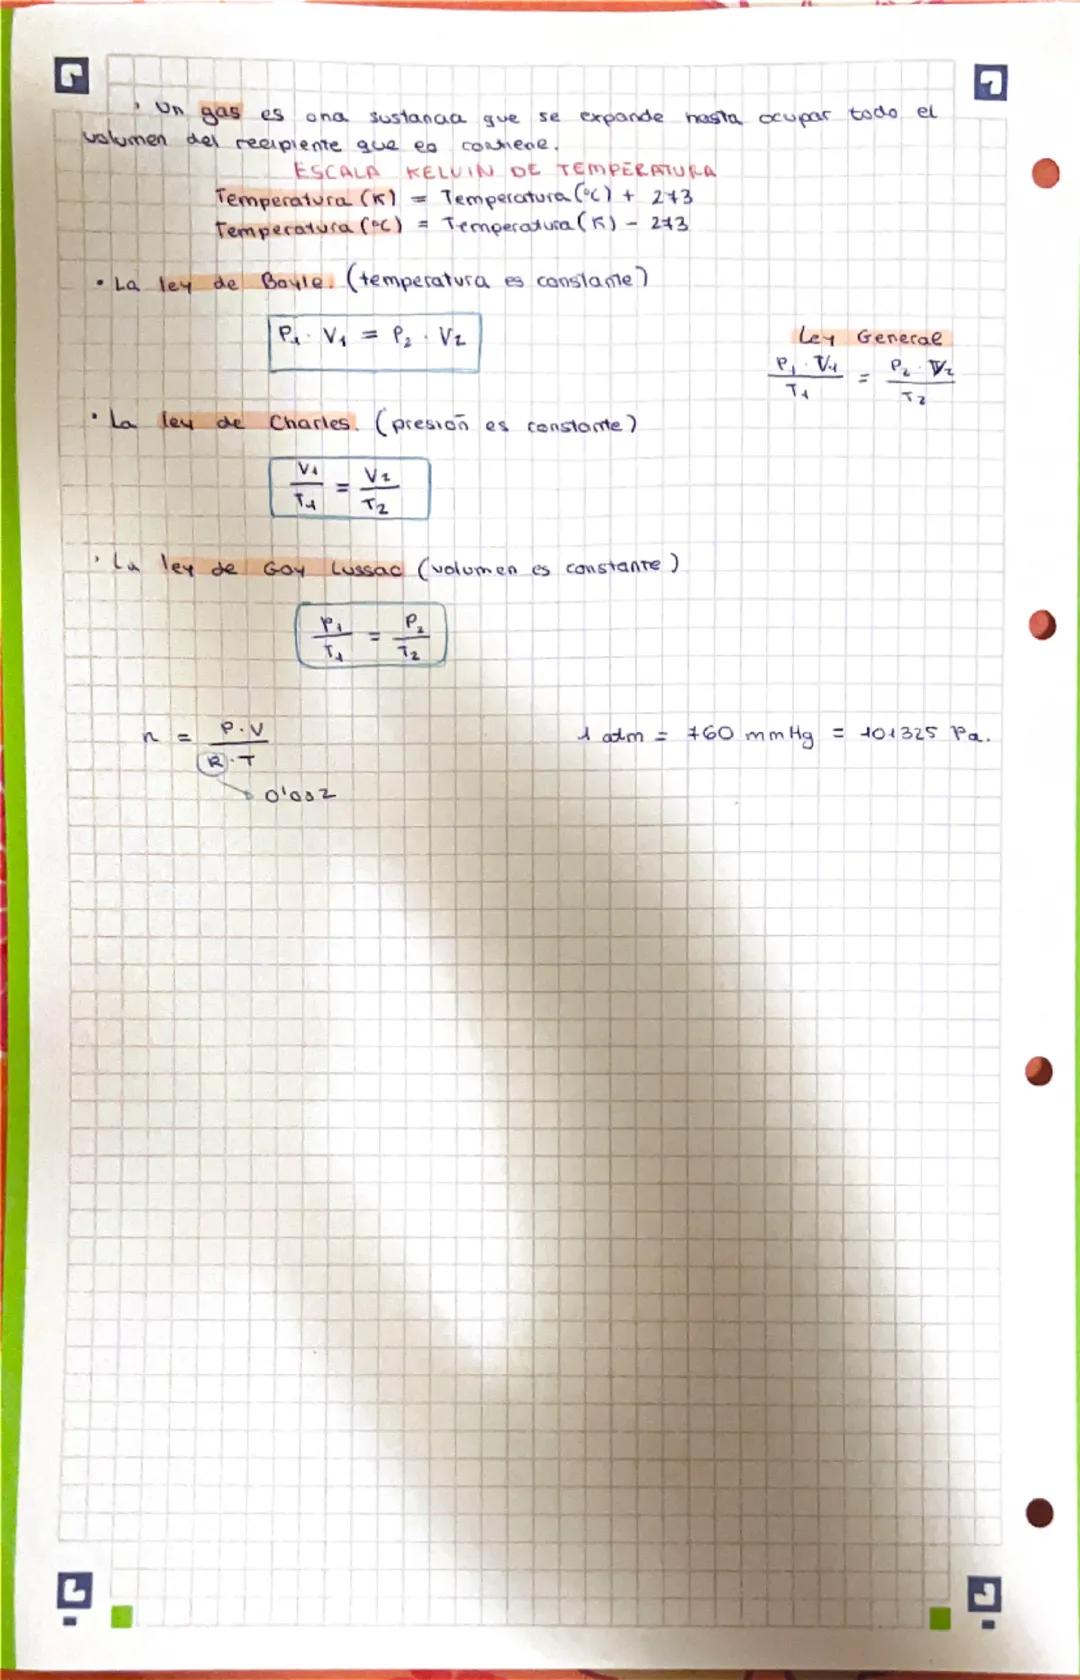 · Un gas es una sustancia que se expande hasta ocupar todo el
volumen del recipiente que lo contiene.
ESCALA KELVIN DE TEMPERATURA
Temperatura (K) = Temperatura (ºC) + 273
Temperatura (ºC) = Temperatura (K) - 273
• La ley de Boyle. (temperatura es constante)
P₁ · V₁ = P₂ · V₂
Ley General
P₁ · V₁ / T₁ = P₂ · V₂ / T₂
• La ley de Charles. (presión es constante)
V₁ / T₁ = V₂ / T₂
• La ley de Gay Lussac (volumen es constante)
P₁ / T₁ = P₂ / T₂
n = P·V / R·T
1 atm = 760 mmHg = 101325 Pa.
0'082